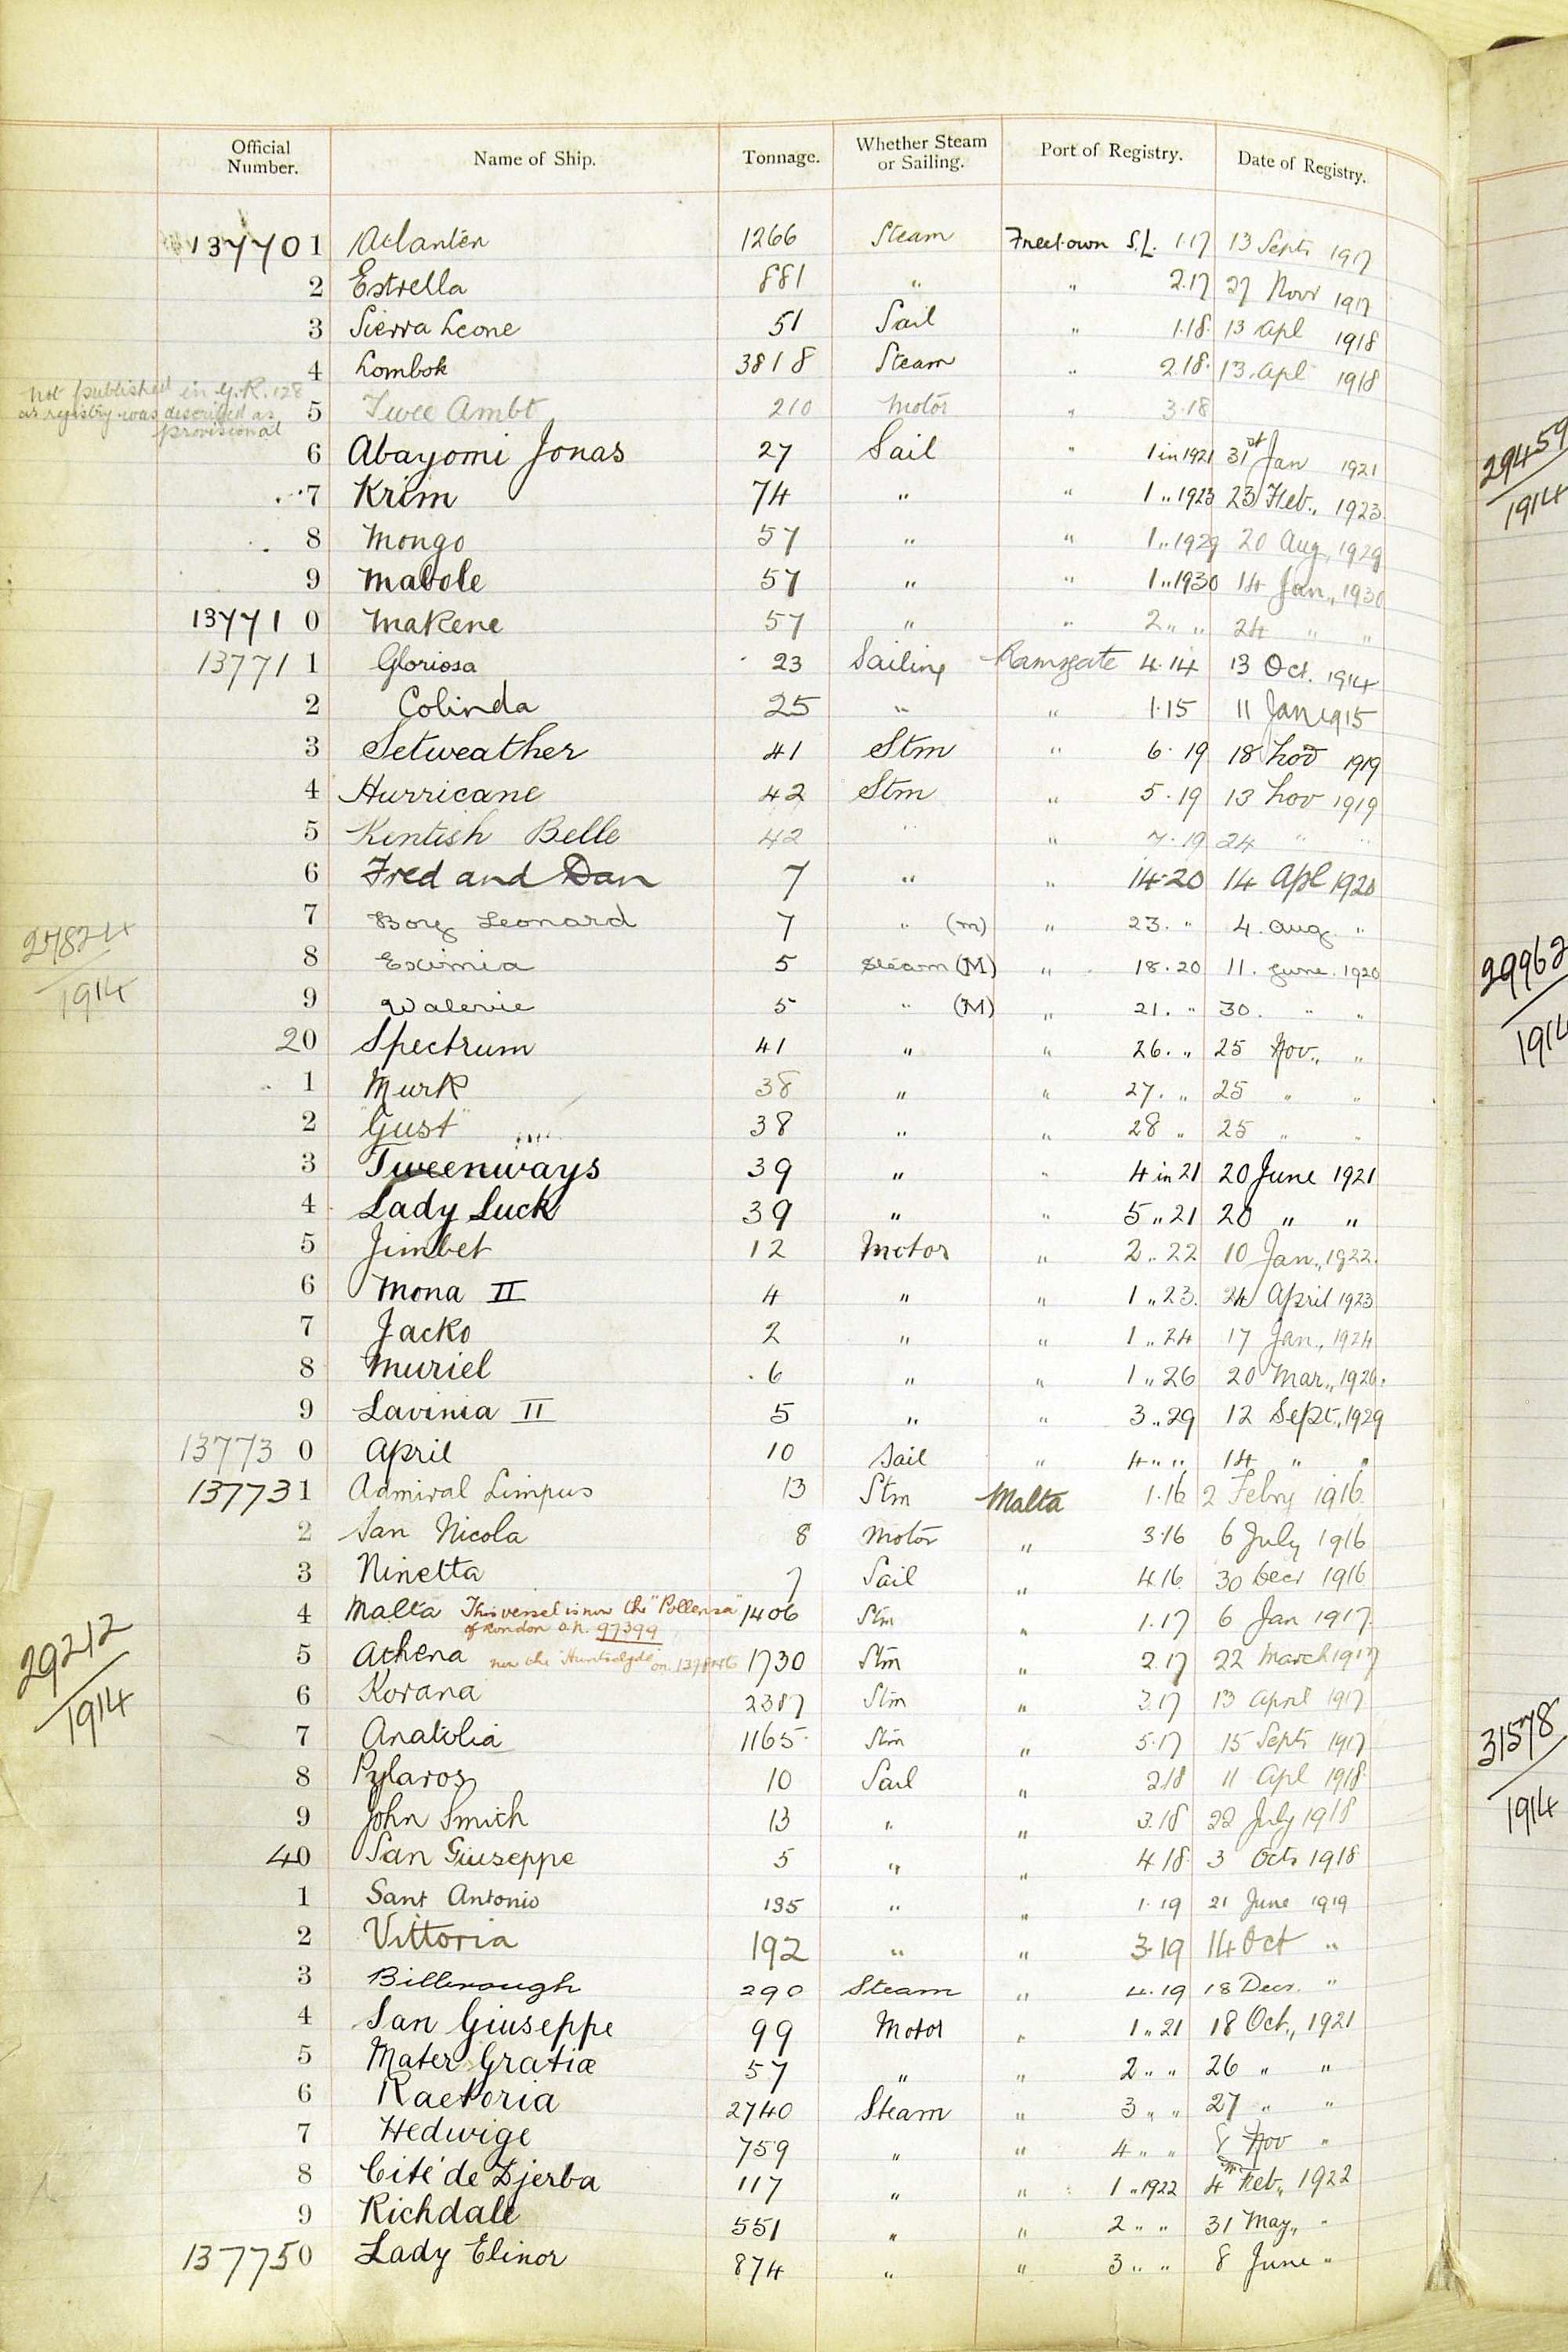 Official Number. Name of Ship. Tonnage. Whether Steam or Sailing. Port of Registry. Date of Registry.
137701 Atlanten 1266 Steam Freetown S.L. 1.17 13 Septr 1917
2 Estrella 881 " " 2.17 27 Novr 1917
3 Sierra Leone 51 Sail " 1.18. 13 Apl 1918
4 Lombok 3818 Steam " 2.18. 13. Apl 1918
not published in G.R. 128
as registry was described as
provisional
5 Twee Ambt 210 Motor " 3.18
6 Abayomi Jonas 27 Sail " 1 in 1921 31st Jan 1921
7 Krim 74 " " 1 " 1923 23 Feb., 1923
8 Mongo 57 " " 1 " 1929 20 Aug, 1929
9 Mabole 57 " " 1 " 1930 14 Jan., 1930
137710 Makene 57 " " 2 " " 24 " "
137711 Gloriosa 23 Sailing Ramsgate 4.14 13 Oct. 1914
2 Colinda 25 " " 1.15 11 Jan 1915
3 Setweather 41 Stm " 6.19 18 Nov 1919
4 Hurricane 42 Stm " 5.19 13 Nov 1919
5 Kentish Belle 42 " " 7.19 24 " "
6 Fred and Dan 7 " " 14.20 14 Apl 1920
7 Boy Leonard 7 " (M) " 23. " 4. Aug. "
8 Eximia 5 Steam (M) " 18.20 11. June. 1920
9 Walerie 5 " (M) " 21. " 30. " "
20 Spectrum 41 " " 26. " 25 Nov., "
1 Murk 38 " " 27. " 25 " "
2 Gust 38 " " 28 " 25 " "
3 Tweenways 39 " " 4 in 21 20 June 1921
4 Lady Luck 39 " " 5 " 21 20 " "
5 Jimbet 12 Motor " 2 " 22 10 Jan., 1922.
6 Mona II 4 " " 1 " 23. 24 April 1923
7 Jacko 2 " " 1 " 24 17 Jan., 1924
8 Muriel 6 " " 1 " 26 20 Mar., 1926.
9 Lavinia II 5 " " 3 " 29 12 Sept., 1929
137730 April 10 Sail " 4 " " 14 " "
137731 Admiral Limpus 13 Stm Malta 1.16 2 Febry 1916
2 San Nicola 8 Motor " 3.16 6 July 1916
3 Ninetta 7 Sail " 4.16 30 Decr 1916
4 Malta This vessel is now the "Pollensa" 1406 Stm " 1.17 6 Jan 1917
of London O.N. 97399
5 Athena now the Huntsclyde on. 1730 Stm " 2.17 22 March 1917
6 Korana 2387 Stm " 3.17 13 April 1917
7 Anatolia 1165 Stm " 5.17 15 Septr 1917
8 Pylaros 10 Sail " 2.18 11 Apl 1918
9 John Smith 13 " " 3.18 22 July 1918
40 San Giuseppe 5 " " 4.18 3 Octr 1918
1 Sant Antonio 135 " " 1.19 21 June 1919
2 Vittoria 192 " " 3.19 14 Oct "
3 Billrough 290 Steam " 4.19 18 Decr. "
4 San Giuseppe 99 Motor " 1 " 21 18 Oct., 1921
5 Mater Gratiæ 57 " " 2 " " 26 " "
6 Raetoria 2740 Steam " 3 " " 27 " "
7 Hedwige 759 " " 4 " " 8 Nov "
8 Cité de Djerba 117 " " 1 " 1922 4th Feb., 1922
9 Richdale 551 " " 2 " " 31 May, "
137750 Lady Elinor 874 " " 3 " " 8 June "
27824
1914
29212
1914
29459
1914
29962
1914
31578
1914